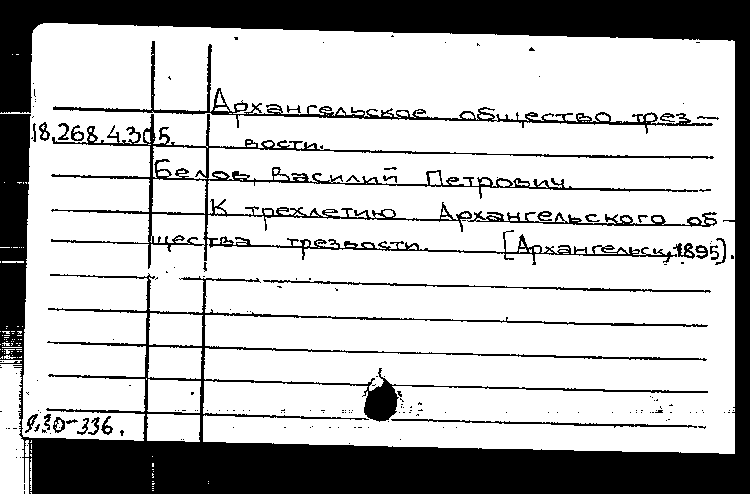 Архангельское общество трез-
18.268.4.305. вости.
Белов, Василий Петрович.
К трехлетию Архангельского об-
щества трезвости. [Архангельск, 1895].
9.30-336.